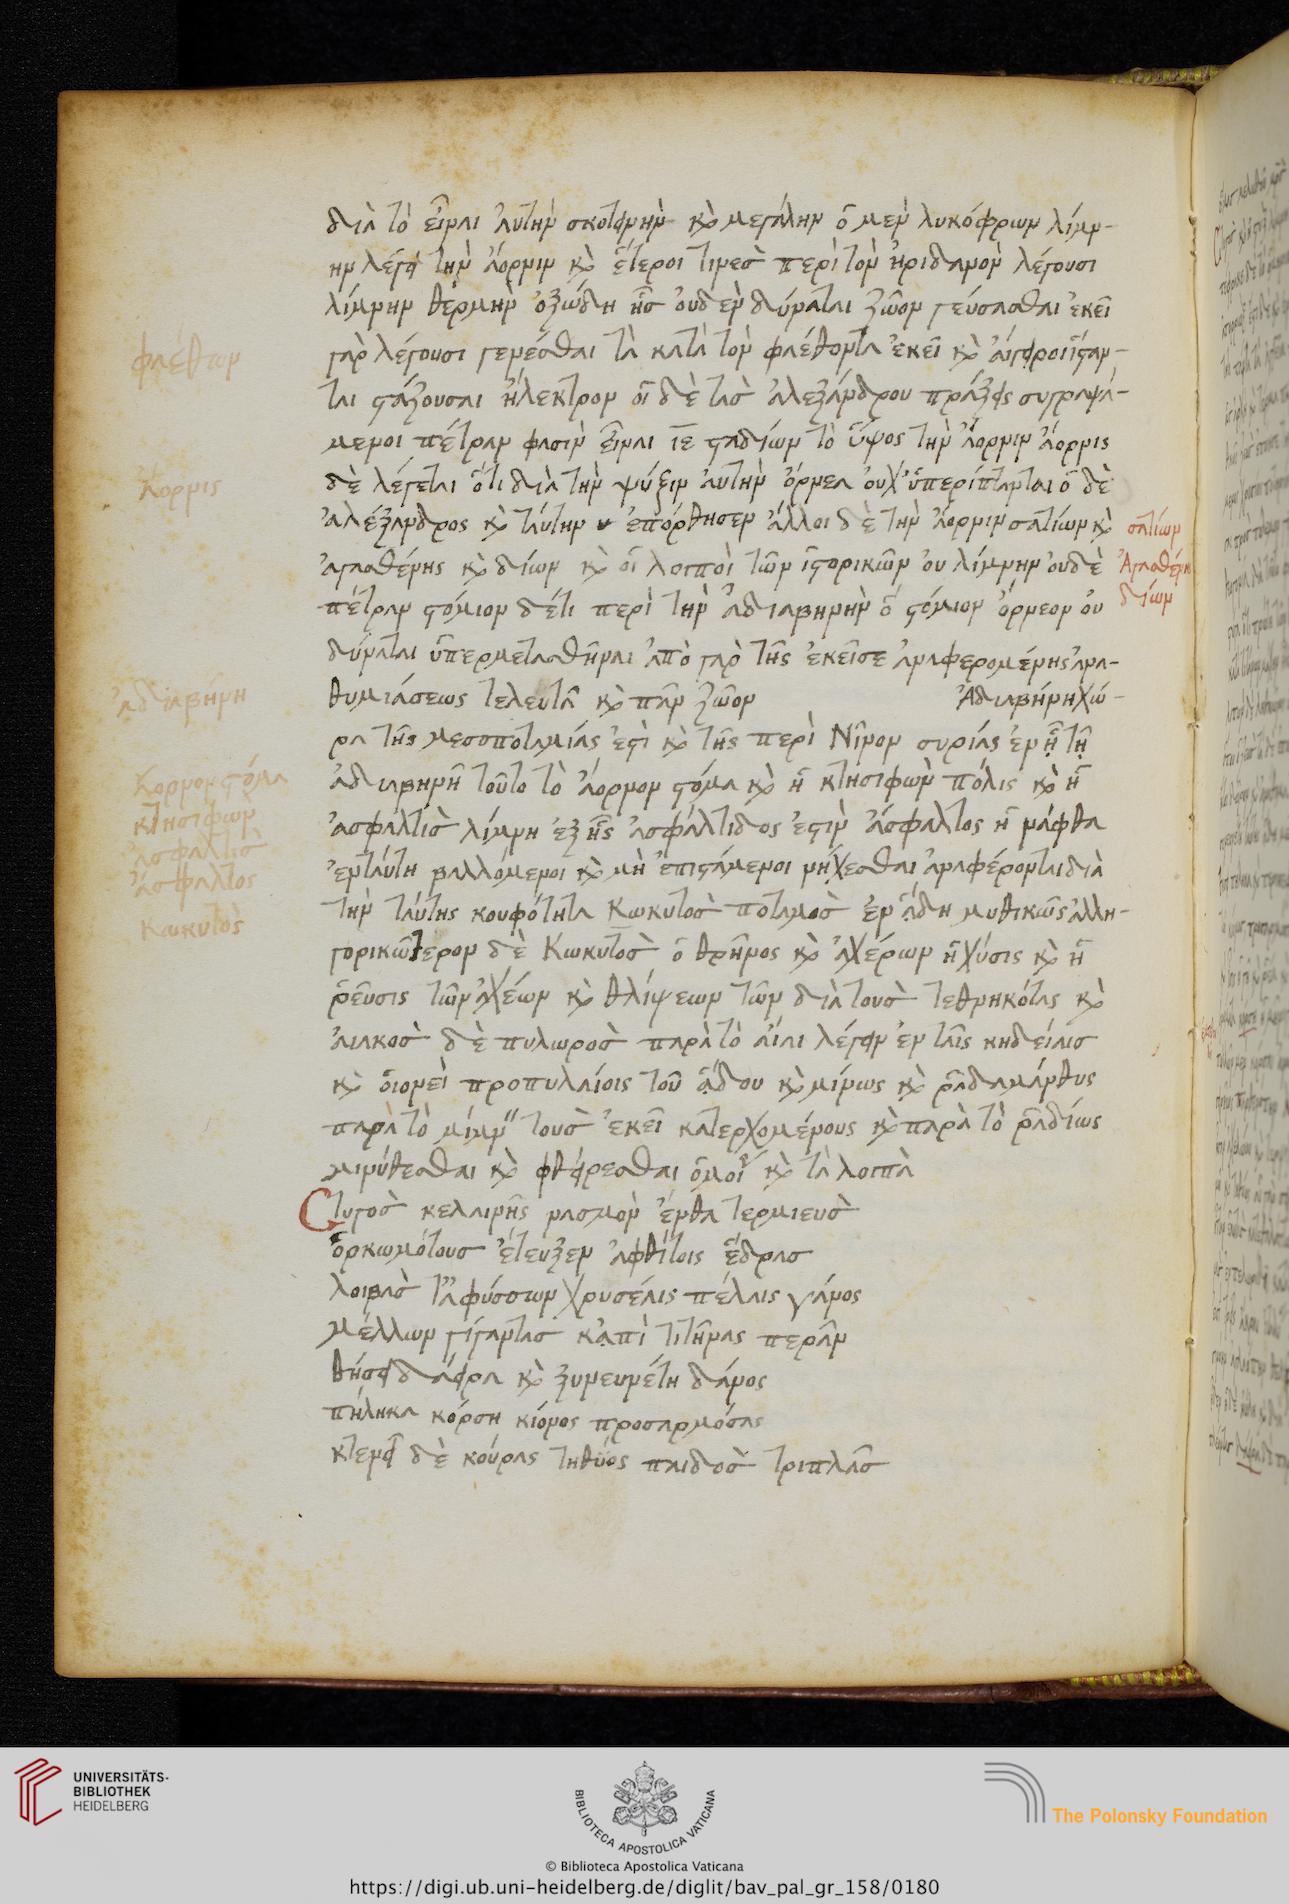 διὰ τὸ εἶναι αὐτὴν σκοτεινὴν καὶ μεγάλην ὁ μὲν λυκόφρων λίμν-
ην λέγει τὴν ἄορνιν καὶ ἕτεροι τινὲσ περὶ τὸν ἠριδανὸν λέγουσι
λίμνην θερμὴν ὀζώδη ἧσ οὐδὲν δύναται ζῶον γεύσασθαι ἐκεῖ
φαέθων
γὰρ λέγουσι γενέσθαι τὰ κατὰ τὸν φαέθοντα ἐκεῖ καὶ αἴγειροι ἵσταν-
ται στάζουσαι ἤλεκτρον οἱ δὲ τὰσ ἀλεξάνδρου πράξεις συγραψά-
μενοι πέτραν φασὶν εἶναι ιε σταδίων τὸ ὕψος τὴν ἄορνιν ἄορνις
ἄορνις
δὲ λέγεται ὅτι διὰ τὴν ψύξιν αὐτὴν ὄρνεα οὐχ ὑπερίπτανται ὁ δὲ
ἀλέξανδρος καὶ ταύτην ἐπόρθησεν ἄλλοι δὲ τὴν ἄορνιν σατίων καὶ
σατίων
ἀγαθένης καὶ δίων καὶ οἱ λοιποὶ τῶν ἱστορικῶν οὐ λίμνην οὐδὲ
δίων
πέτραν στόμιον δέ τι περὶ τὴν ἀδιαβηνὴν ὃ στόμιον ὄρνεον οὐ
δύναται ὑπερμετασθῆναι ἀπὸ γὰρ τῆς ἐκεῖσε ἀναφερομένης ἀνα-
ἀδιαβήνη
θυμιάσεως τελευτᾶ καὶ πᾶν ζῶον Ἀδιαβήνη χώ-
ρα τῆς μεσοποταμίας ἐστὶ καὶ τῆς περὶ Νῖνον συρίας ἐν ᾗ τῇ
ἄορνον στόμα
ἀδιαβηνῆ τοῦτο τὸ ἄορνον στόμα καὶ ἡ κτησιφὼν πόλις καὶ ἡ
κτησιφὼν
ἀσφαλτὶσ
ἀσφαλτὶσ λίμνη ἐξ ἧς ἀσφάλτιδος ἐστὶν ἄσφαλτος ἡ νάφθα
ἄσφαλτος
ἐν ταύτη βαλλόμενοι καὶ μὴ ἐπιστάμενοι νήχεσθαι ἀναφέρονται διὰ
κωκυτὸς
τὴν ταύτης κουφότητα Κωκυτὸσ ποταμὸσ ἐν ᾅδη μυθικῶς ἀλλη-
γορικώτερον δὲ Κωκυτὸσ ὁ θρῆνος καὶ ἀχέρων ἡ χύσις καὶ ἡ
ῥεῦσις τῶν ἀχέων καὶ θλίψεων τῶν διὰ τοὺσ τεθνηκότας καὶ
ἀιακὸσ δὲ πυλωρὸσ παρὰ τὸ αἴαι λέγειν ἐν ταῖς κηδείαισ
καὶ οἱονεὶ προπυλαίοις τοῦ ᾅδου καὶ μίνως καὶ ῥαδαμάνθυς
παρὰ τὸ μίμν" τοὺσ ἐκεῖ κατερχομένους καὶ παρὰ τὸ ῥαδίως
μινύθεσθαι καὶ φθείρεσθαι ὁμοί καὶ τὰ λοιπὰ
Στυγὸσ κελαινῆς νασμὸν ἔνθα τερμιεὺσ
ὁρκωμότουσ ἔτευξεν ἀφθίτοις ἕδρασ
λοιβὰσ τ' ἀφύσσων χρυσέαις πέλαις γάνος
μέλλων γίγαντασ κἀπὶ τιτῆνας περᾶν
θήσει δαείρα καὶ ξυνευνέτη δάνος
πήληκα κόρση κίονος προσαρμόσας
κτενεῖ δὲ κούρας τηθύος παιδὸσ τριπλᾶσ
UNIVERSITÄTS-
BIBLIOTHEK
HEIDELBERG
BIBLIOTECA APOSTOLICA VATICANA
The Polonsky Foundation
© Biblioteca Apostolica Vaticana
https://digi.ub.uni-heidelberg.de/diglit/bav_pal_gr_158/0180